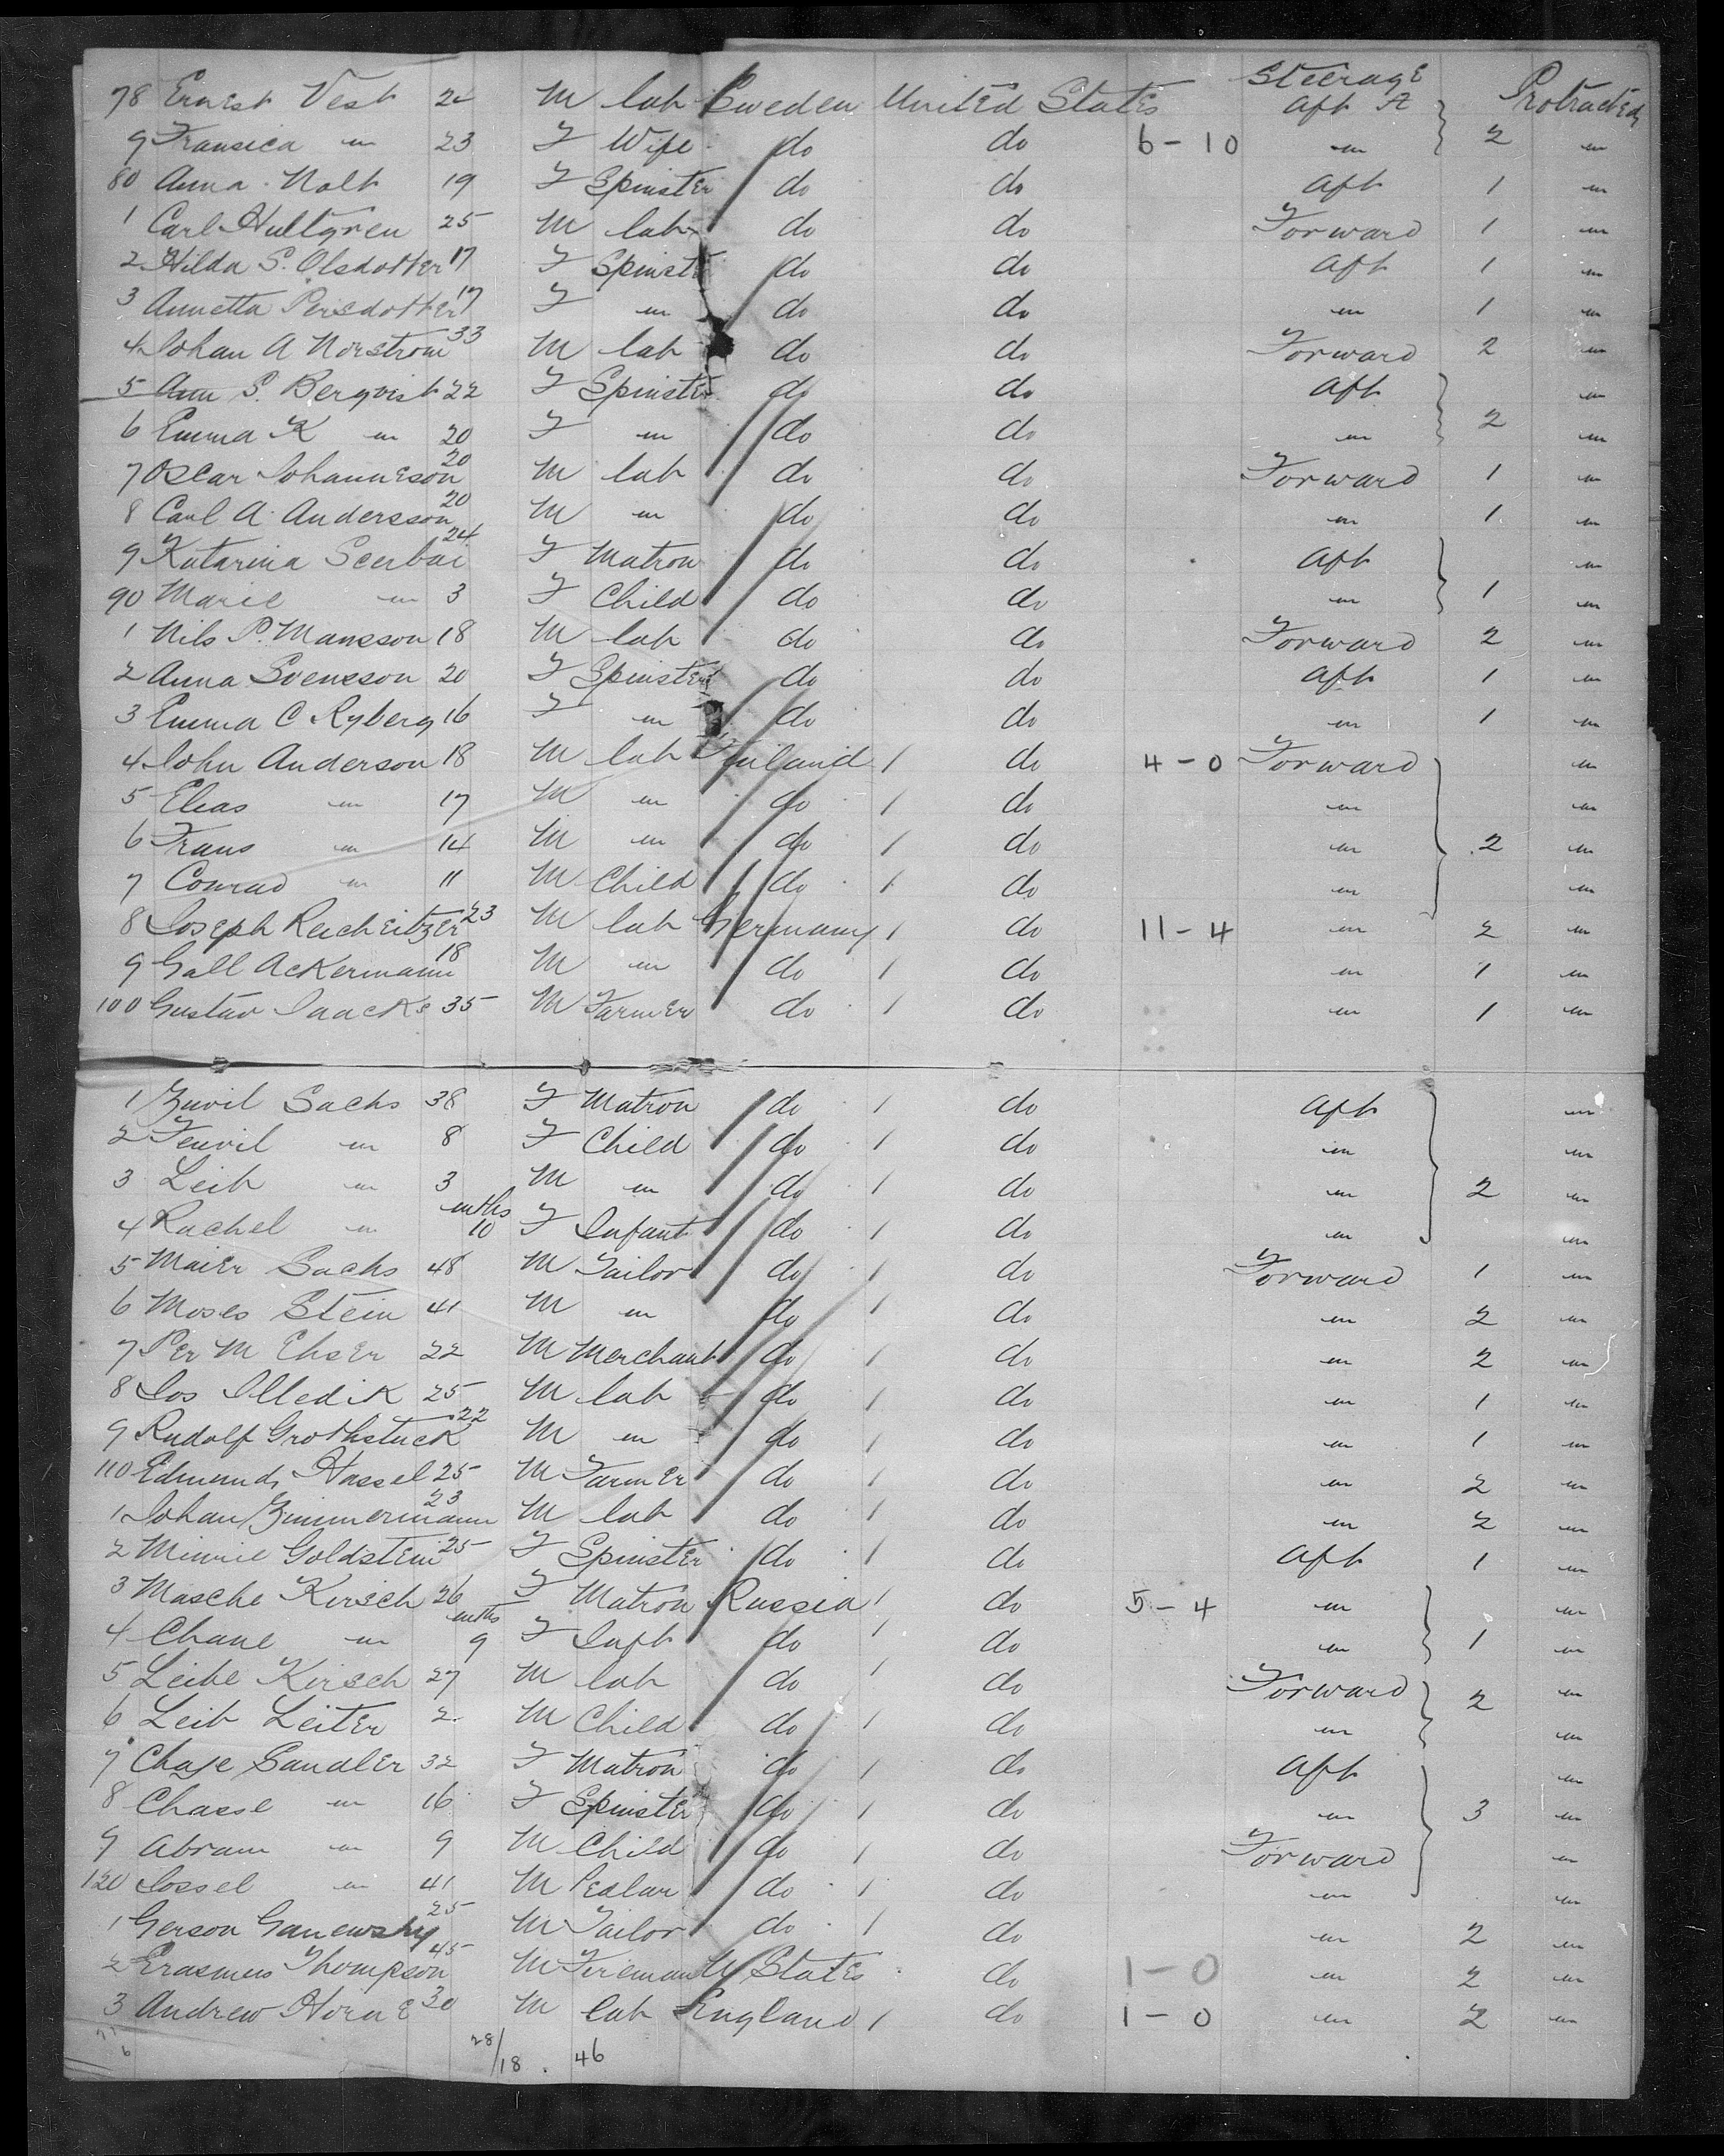 Steerage
78 Ernest Vest 24 M lab Sweden United States Aft A Protracted
9 Fransica " 23 F Wife do do 6-10 " 2 "
80 Anna Nolt 19 F Spinster do do Aft 1 "
1 Carl Hultgren 25 M lab do do Forward 1 "
2 Hilda S. Olsdotter 17 F Spinster do do Aft 1 "
3 Annetta Persdotter 17 F " do do " 1 "
4 Johan A Norstrom 33 M lab do do Forward 2 "
5 Ann S. Berqvist 22 F Spinster do do Aft "
6 Emma K " 20 F " do do " 2 "
7 Oscar Johanneson 20 M lab do do Forward 1 "
8 Carl A. Andersson 20 M " do do " 1 "
9 Katarina Scerbai 24 F Matron do do Aft "
90 Marie " 3 F Child do do " 1 "
1 Nils P. Mansson 18 M lab do do Forward 2 "
2 Anna Svensson 20 F Spinster do do Aft 1 "
3 Emma C Ryberg 16 F " do do " 1 "
4 John Anderson 18 M lab Finland 1 do 4-0 Forward "
5 Elias " 17 M " do 1 do " "
6 Frans " 14 M " do 1 do " 2 "
7 Conrad " 11 M Child do 1 do " "
8 Joseph Reicheitzer 23 M lab Germany 1 do 11-4 " 2 "
9 Gall Ackermann 18 M " do 1 do " 1 "
100 Gustav Isacks 35 M Farmer do 1 do " 1 "
1 Zuvil Sachs 38 F Matron do 1 do Aft "
2 Feuvil " 8 F Child do 1 do " "
3 Leib " 3 M " do 1 do " 2 "
4 Rachel " mths 10 F Infant do 1 do " "
5 Maier Sachs 48 M Tailor do 1 do Forward 1 "
6 Moses Stein 41 M " do 1 do " 2 "
7 Per M Ehser 22 M Merchant do 1 do " 2 "
8 Jos Illedik 25 M lab do 1 do " 1 "
9 Rudolf Grothstuck 22 M " do 1 do " 1 "
110 Edmund Hassel 25 M Farmer do 1 do " 2 "
1 Johan Zimmermann 23 M lab do 1 do " 2 "
2 Minnie Goldstein 25 F Spinster do 1 do Aft 1 "
3 Masche Kirsch 26 F Matron Russia 1 do 5-4 " "
4 Chane " mths 9 F Inft do 1 do " 1 "
5 Leibe Kirsch 27 M lab do 1 do Forward 2 "
6 Leib Leiter 2 M Child do 1 do " "
7 Chaje Sandler 32 F Matron do 1 do Aft "
8 Chasse " 16 F Spinster do 1 do " 3 "
9 Abram " 9 M Child do 1 do Forward "
120 Jossel " 41 M Pedlar do 1 do " "
1 Gerson Ganewsky 25 M Tailor do 1 do " 2 "
2 Erasmus Thompson 45 M Fireman U States do 1-0 " 2 "
3 Andrew Horne 30 M lab England 1 do 1-0 " 2 "
28/18 . 46